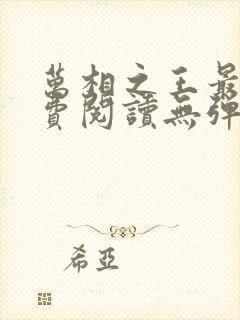 萬相之王最
費閱讀無彈
希亞